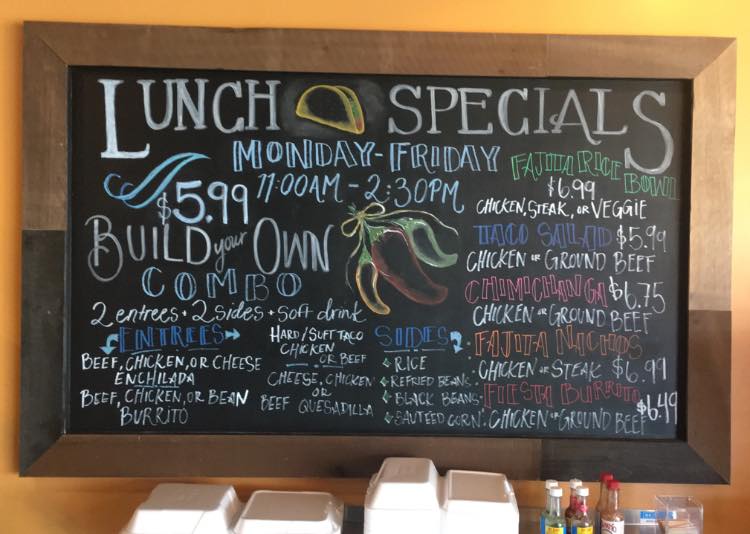 LUNCH SPECIALS
MONDAY-FRIDAY
11:00AM - 2:30PM
$5.99
BUILD your OWN
COMBO
2 entrees + 2 sides + soft drink
ENTREES
BEEF, CHICKEN, OR CHEESE
ENCHILADA
BEEF, CHICKEN, OR BEAN
BURRITO
HARD/SUFT TACO
CHICKEN
OR BEEF
CHEESE, CHICKEN
OR
BEEF QUESADILLA
SIDES
RICE
REFRIED BEANS
BLACK BEANS
SAUTEED CORN
FAJITA RICE
BOWL
$6.99
CHICKEN, STEAK, OR VEGGIE
TACO SALAD $5.99
CHICKEN OR GROUND BEEF
CHIMICHANGA $6.75
CHICKEN OR GROUND BEEF
FAJITA NACHOS
CHICKEN OR STEAK $6.99
FIESTA BURRITO $6.49
CHICKEN OR GROUND BEEF